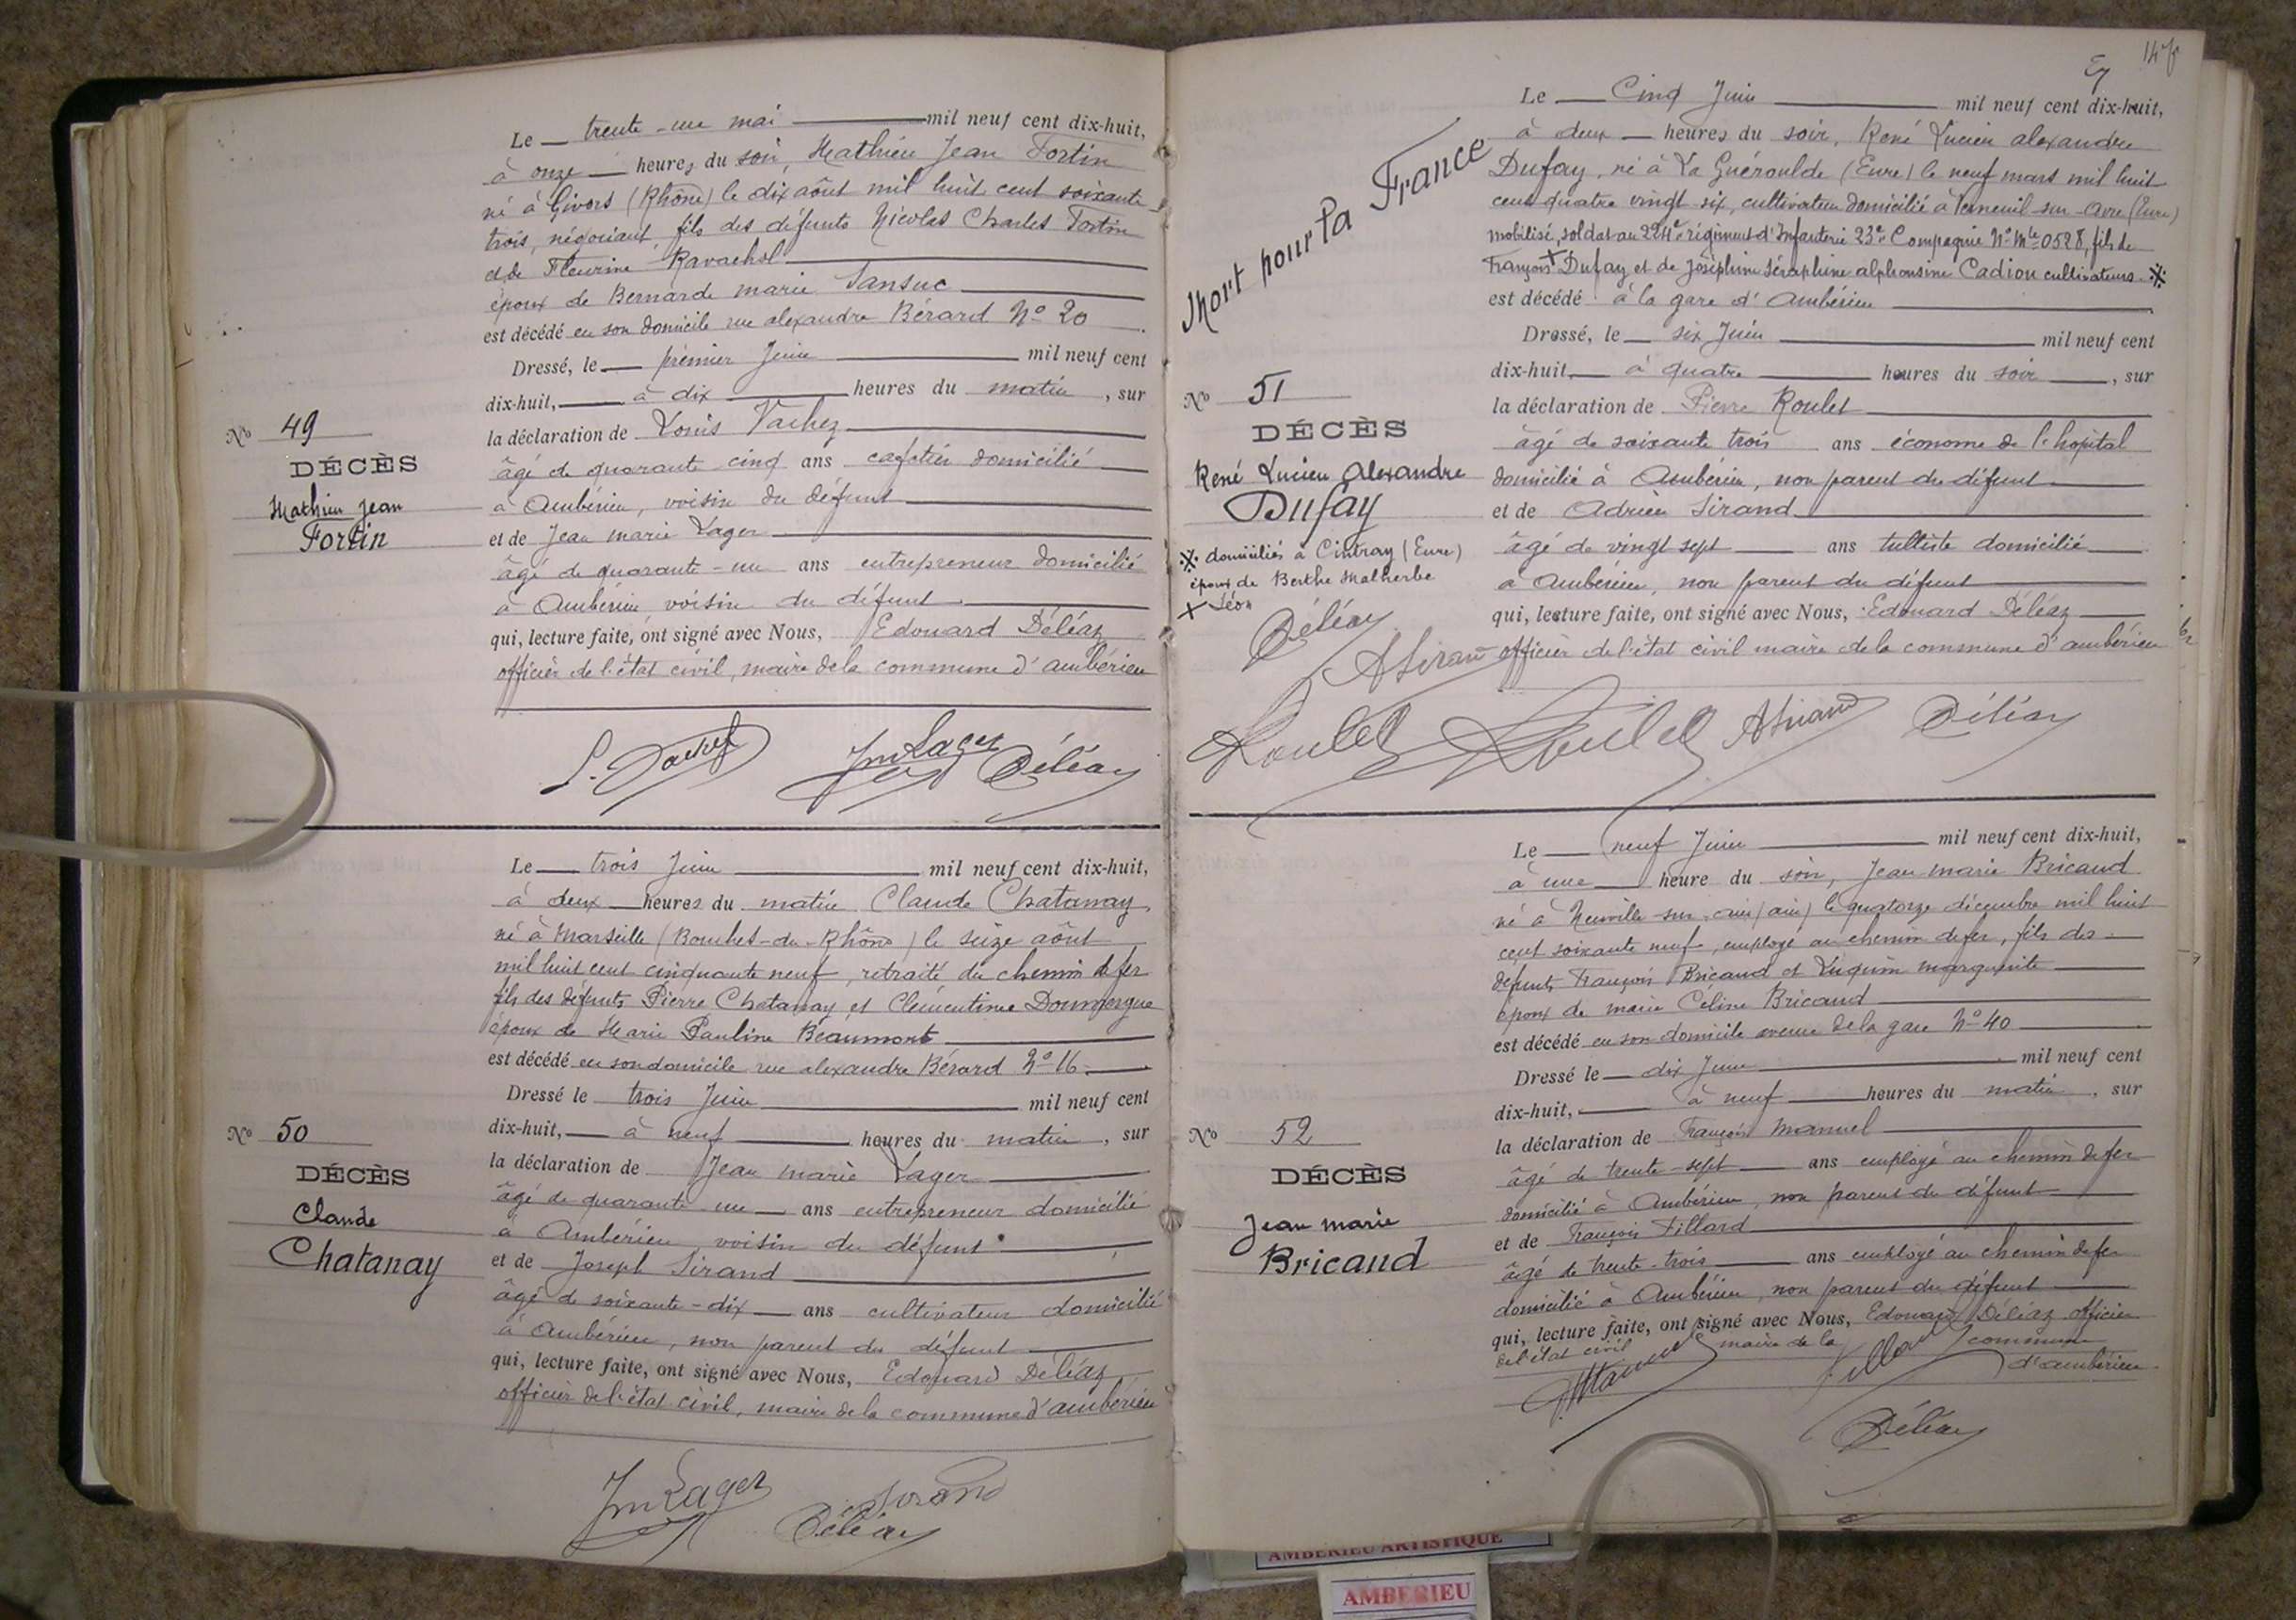 Le trente-un mai mil neuf cent dix-huit,
à onze heures du soir, Mathieu Jean Fortin
né à Givors (Rhône) le dix août mil huit cent soixante
trois, négociant, fils des défunts Nicolas Charles Fortin
et de Fleurine Ravachol
époux de Bernarde marie Sansuc
est décédé en son domicile rue alexandre Bérard No 20
Dressé, le premier Juin mil neuf cent
dix-huit, à dix heures du matin, sur
la déclaration de Louis Vachez
âgé de quarante cinq ans cafetier domicilié
à Ambérieu, voisin du défunt
et de Jean marie Lager
âgé de quarante-un ans entrepreneur domicilié
à Ambérieu voisin du défunt
qui, lecture faite, ont signé avec Nous, Edouard Déléaz
officier de l'état civil, maire de la commune d'ambérieu
No 49
DÉCÈS
Mathieu Jean
Fortin
L. Vachez JM Lager Déléaz
Le trois Juin mil neuf cent dix-huit,
à deux heures du matin Claude Chatanay,
né à Marseille (Bouches-du-Rhône) le seize août
mil huit cent cinquante neuf, retraité du chemin de fer
fils des défunts Pierre Chatanay et Clémentine Doumergue
époux de Marie Pauline Beaumont
est décédé en son domicile rue alexandre Bérard No 16
Dressé le trois Juin mil neuf cent
dix-huit, à neuf heures du matin, sur
la déclaration de Jean marie Lager
âgé de quarante-un ans entrepreneur domicilié
à Ambérieu, voisin du défunt
et de Joseph Sirand
âgé de soixante-dix ans cultivateur domicilié
à Ambérieu, non parent du défunt
qui, lecture faite, ont signé avec Nous, Edouard Déléaz
officier de l'état civil, maire de la commune d'ambérieu
No 50
DÉCÈS
Claude
Chatanay
JM Lager Sirand
Déléaz
Le Cinq Juin mil neuf cent dix-huit,
à deux heures du soir, René Lucien alexandre
Dufay, né à La Guéroulde (Eure) le neuf mars mil huit
cent quatre vingt six, cultivateur domicilié à Verneuil-sur-Avre (Eure)
mobilisé, soldat au 224e régiment d'Infanterie 23e Compagnie No Mle 0528, fils de
François + Dufay et de Joséphine Séraphine alphonsine Cadiou cultivateurs. ※
est décédé à la gare d'Ambérieu
Dressé, le six Juin mil neuf cent
dix-huit à quatre heures du soir, sur
la déclaration de Pierre Roulet
âgé de soixante trois ans économe de l'hopital
domicilié à Ambérieu, non parent du défunt
et de Adrien Sirand
âgé de vingt sept ans tulliste domicilié
à Ambérieu, non parent du défunt
qui, lecture faite, ont signé avec Nous, Edouard Déléaz
officier de l'état civil maire de la commune d'ambérieu
Mort pour la France
No 51
DÉCÈS
René Lucien Alexandre
Dufay
※ domiciliés à Cintray (Eure)
époux de Berthe Malherbe
+ Léon
Déléaz
ASirand
Roulet Roulet ASirand Déléaz
Le neuf Juin mil neuf cent dix-huit,
à une heure du soir, Jean marie Bricaud
né à Neuville-sur-ain (ain) le quatorze décembre mil huit
cent soixante neuf, employé au chemin de fer, fils des
défunts François Bricaud et Luquin marguerite
époux de marie Céline Bricaud
est décédé en son domicile avenue de la gare No 40
Dressé le dix Juin mil neuf cent
dix-huit, à neuf heures du matin, sur
la déclaration de François Manuel
âgé de trente-sept ans employé au chemin de fer
domicilié à Ambérieu, non parent du défunt
et de François Tillard
âgé de trente-trois ans employé au chemin de fer
domicilié à Ambérieu, non parent du défunt
qui, lecture faite, ont signé avec Nous, Edouard Déléaz officier
de l'état civil maire de la commune
d'ambérieu
No 52
DÉCÈS
Jean marie
Bricaud
Manuel Tillard
Déléaz
AMBERIEU ARTISTIQUE
AMBERIEU